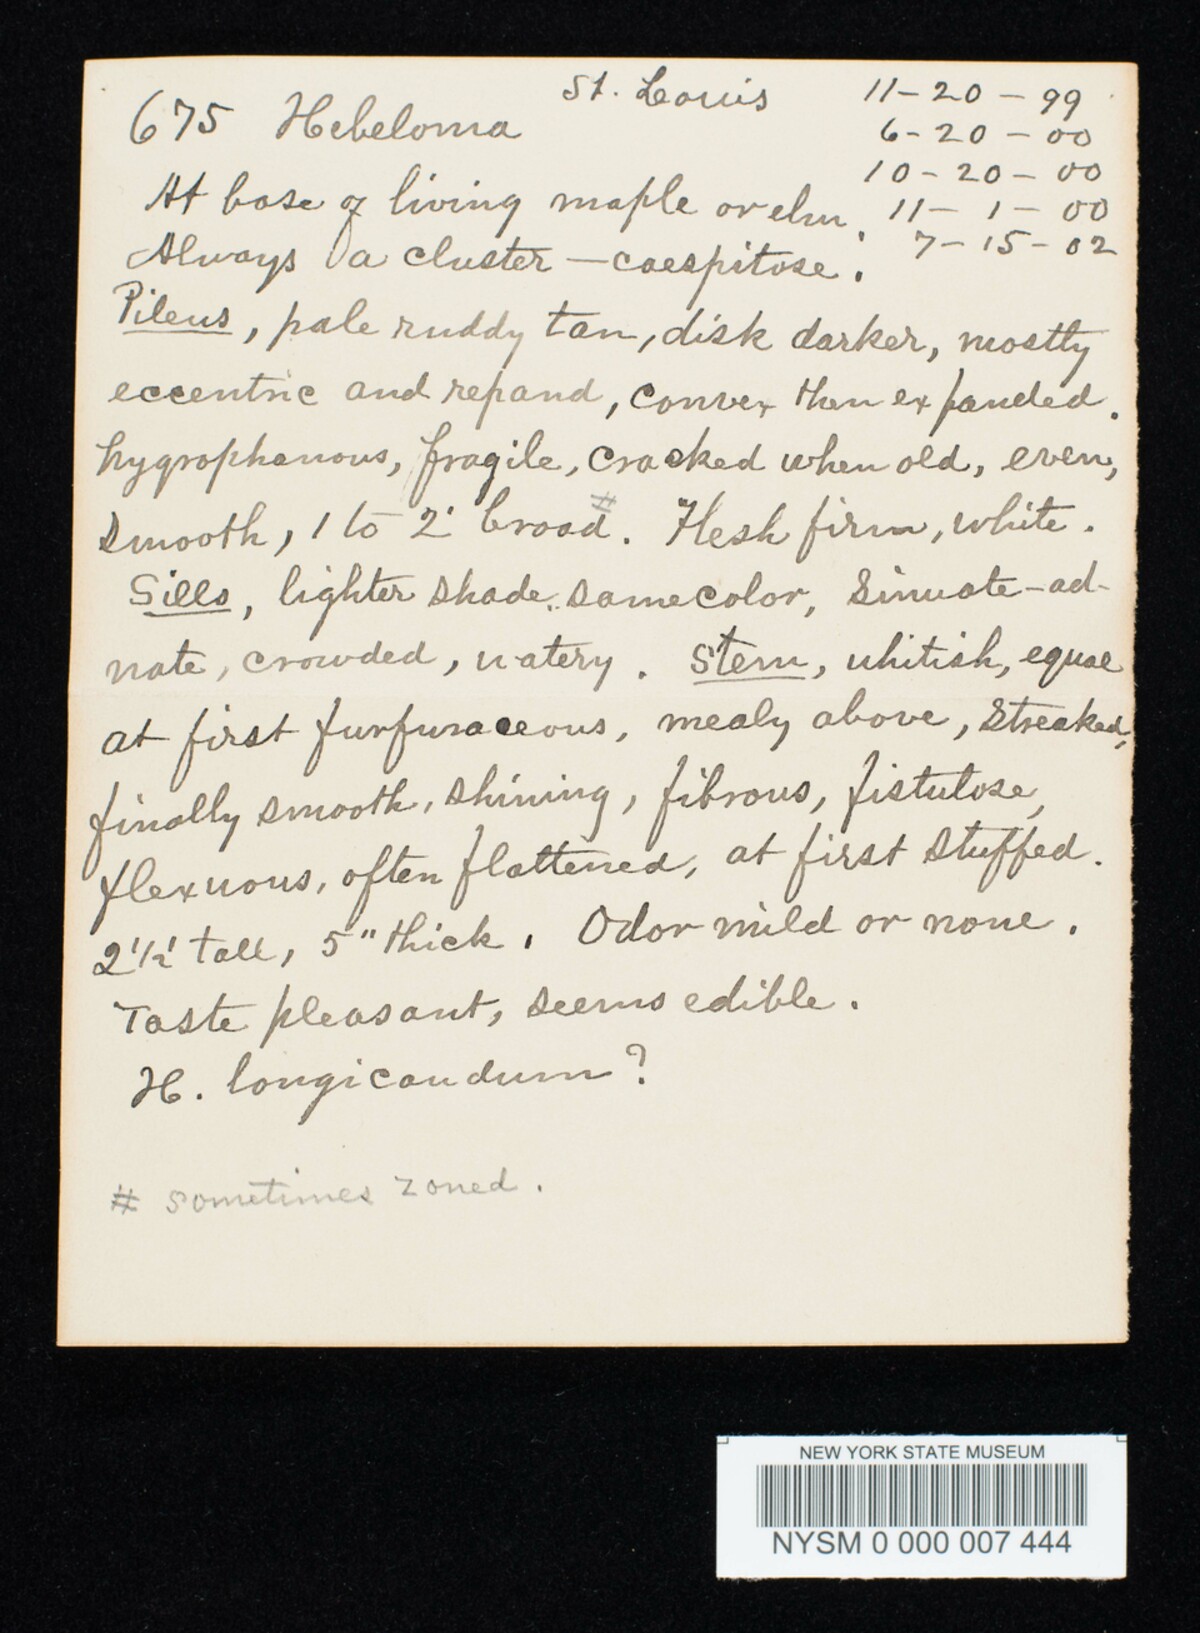 St. Louis
11-20-99
6-20-00
10-20-00
11-1-00
7-15-02
675 Hebeloma
At base of living maple or elm.
Always a cluster - caespitose.
Pileus, pale ruddy tan, disk darker, mostly
eccentric and repand, convex then expanded.
hygrophanous, fragile, cracked when old, even,
smooth, 1 to 2' broad. # Flesh firm, white.
Gills, lighter shade same color, sinuate-ad-
nate, crowded, watery. Stem, whitish, equal
at first furfuraceous, mealy above, streaked,
finally smooth, shining, fibrous, fistulose,
flexuous, often flattened, at first stuffed.
2 1/2' tall, 5" thick. Odor mild or none.
Taste pleasant, seems edible.
H. longicaudum?
# sometimes zoned.
NEW YORK STATE MUSEUM
NYSM 0 000 007 444